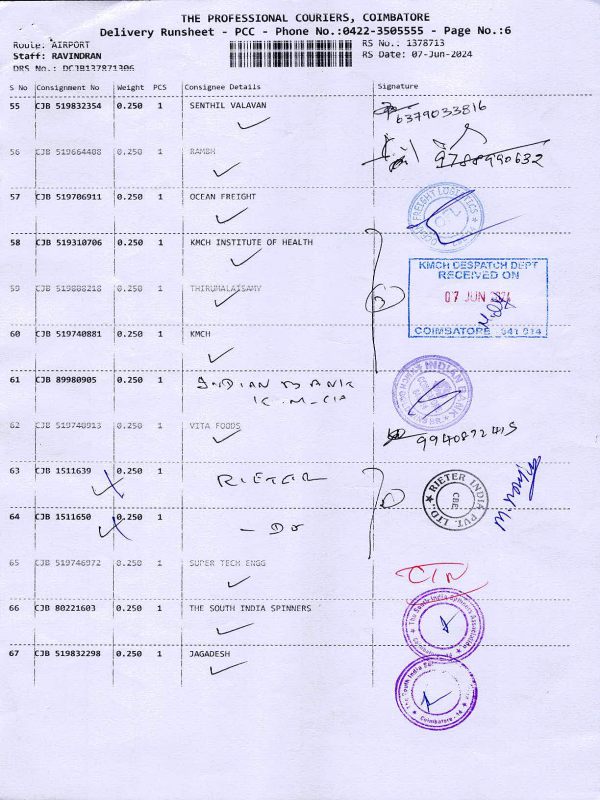 THE PROFESSIONAL COURIERS, COIMBATORE
Delivery Runsheet - PCC - Phone No.:0422-3505555 - Page No.:6
Route: AIRPORT RS No.: 1378713
Staff: RAVINDRAN RS Date: 07-Jun-2024
DRS No.: DCJB137871306
S No Consignment No Weight PCS Consignee Details Signature
55 CJB 519832354 0.250 1 SENTHIL VALAVAN 6379033816
56 CJB 519664408 0.250 1 RAMBH 9788990632
57 CJB 519706911 0.250 1 OCEAN FREIGHT
58 CJB 519310706 0.250 1 KMCH INSTITUTE OF HEALTH
KMCH DESPATCH DEPT
RECEIVED ON
59 CJB 519808218 0.250 1 THIRUMALAISAMY 07 JUN
60 CJB 519740881 0.250 1 KMCH COIMBATORE - 641 014
61 CJB 89980905 0.250 1 INDIAN BANK
INDIAN BANK
62 CJB 519748913 0.250 1 VITA FOODS 9940872415
63 CJB 1511639 0.250 1 RIETER
RIETER INDIA PVT. LTD.
CBE
64 CJB 1511650 0.250 1 - DO
65 CJB 519746972 0.250 1 SUPER TECH ENGG
66 CJB 80221603 0.250 1 THE SOUTH INDIA SPINNERS
The South India Spinners Association
Coimbatore - 14
67 CJB 519832298 0.250 1 JAGADESH
The South India
Coimbatore - 14